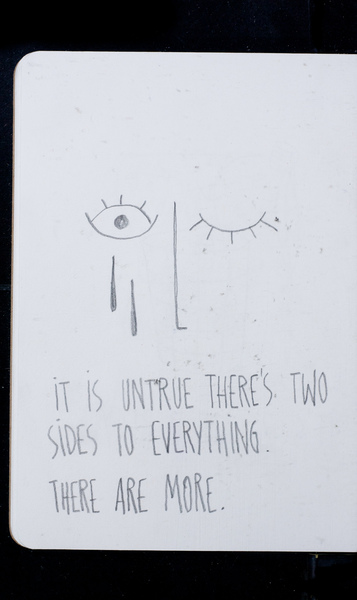 IT IS UNTRUE THERE'S TWO
SIDES TO EVERYTHING.
THERE ARE MORE.